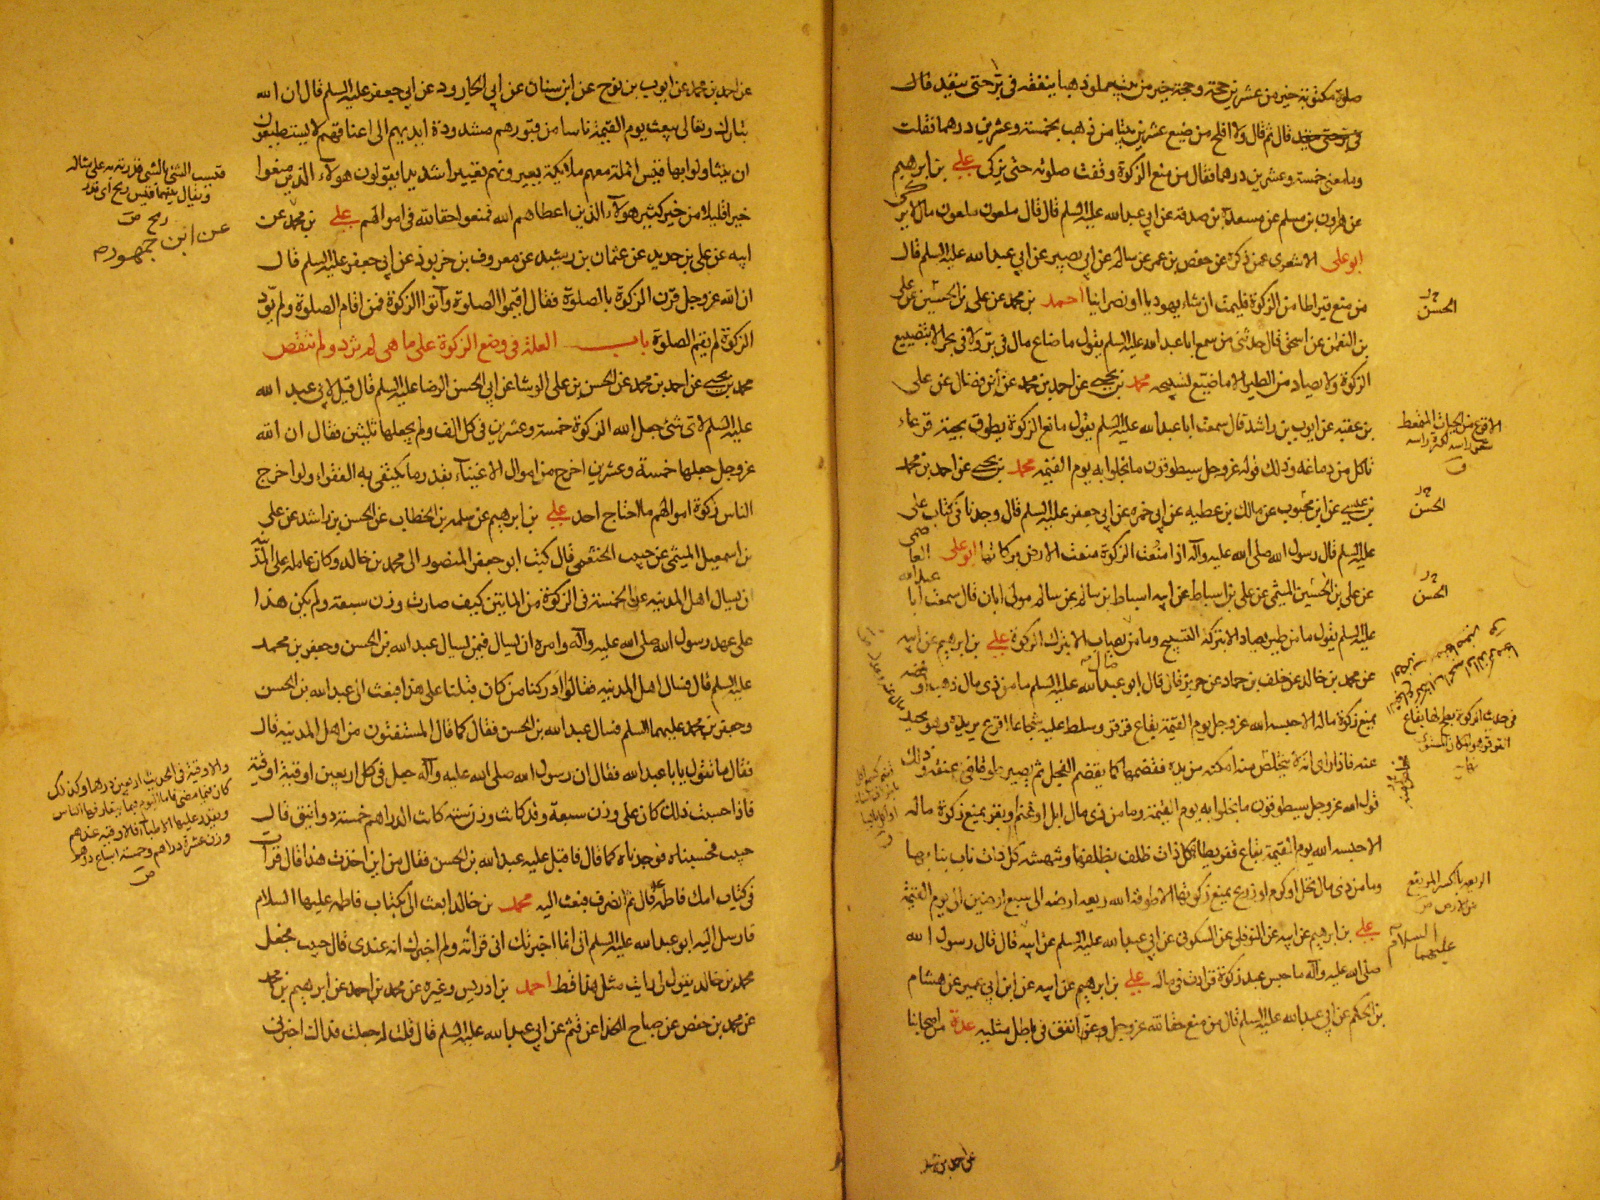 صلوة مكتوبة خير من عشرين حجة وحجة خير من بيت مملو ذهبا ينفقه في بر حتى ينفد قال
ثم قال ولا افلح من ضيع عشرين بيتا من ذهب بخمسة وعشرين درهما فقلت
وما معنى خمسة وعشرين درهما فقال من منع الزكوة وقفت صلوته حتى يزكى علي بن ابرهيم
عن هرون بن مسلم عن مسعدة بن صدقة عن ابي عبدالله عليه السلم قال قال ملعون ملعون مال لا يزكى
ابو على الاشعرى عمن ذكره عن حفص بن عمر عن سالم عن ابي بصير عن ابي عبدالله عليه السلم قال
من منع قيراطا من الزكوة فليمت ان شاء يهوديا او نصرانيا احمد بن محمد عن علي بن الحسين عن علي
بن النعمن عن اسحق قال حدثنى من سمع ابا عبدالله عليه السلم يقول ما ضاع مال في بر ولا في بحر الا بتضييع
الزكوة ولا يصاد من الطير الا ما ضيع تسبيحه محمد بن يحيى عن احمد بن محمد عن ابن فضال عن علي
بن عقبه عن ايوب بن راشد قال سمعت ابا عبدالله عليه السلم يقول مانع الزكوة يطوق بحية قرعاء
تاكل من دماغه وذلك قوله عز وجل سيطوقون ما بخلوا به يوم القيمة محمد بن يحيى عن احمد بن محمد
بن عيسى عن ابن محبوب عن مالك بن عطيه عن ابي حمزه عن ابي جعفر عليه السلم قال وجدنا في كتاب علي
عليه السلم قال رسول الله صلى الله عليه وآله اذا منعت الزكوة منعت الارض بركاتها ابو على
عن علي بن الحسين الميثمى عن علي بن اسباط عن ابيه اسباط بن سالم عن سالم مولى ابان قال سمعت ابا
عليه السلم يقول ما من طير يصاد الا بتركه التسبيح وما من مال يصاب الا بترك الزكوة علي بن ابرهيم عن ابيه
عن محمد بن خالد عن خلف بن حماد عن حريز قال قال ابو عبدالله عليه السلم ما من ذى مال ذهب او فضه
يمنع زكوة ماله الا حبسه الله عز وجل يوم القيمة بقاع قرقر وسلط عليه شجاعا اقرع يريده وهو يحيد
عنه فاذا راى انه لا يتخلص منه امكنه من يده فقضمها كما يقضم الفجل ثم يصير طوقا في عنقه وذلك
قول الله عز وجل سيطوقون ما بخلوا به يوم القيمة وما من ذى مال ابل او غنم او بقر يمنع زكوة ماله
الا حبسه الله يوم القيمة بقاع قرقر يطأه كل ذات ظلف بظلفها وينهشه كل ذات ناب بنابها
وما من ذى مال نخل او كرم او زرع يمنع زكوتها الا طوقه الله ريعه ارضه الى سبع ارضين الى يوم القيمة
علي بن ابرهيم عن ابيه عن النوفلى عن السكونى عن ابي عبدالله عليه السلم عن ابيه قال قال رسول الله
صلى الله عليه وآله ما حبس عبد زكوة فزادت في ماله علي بن ابرهيم عن ابيه عن ابن ابي عمير عن هشام
بن الحكم عن ابي عبدالله عليه السلم قال من منع حقا لله عز وجل انفق في باطل مثليه عدة من اصحابنا
الحسن
الحسن
الحسن
عليهما السلام
عن احمد بن محمد
عن احمد بن محمد عن ايوب بن نوح عن ابن سنان عن ابي الجارود عن ابي جعفر عليه السلم قال ان الله
تبارك وتعالى يبعث يوم القيمة ناسا من قبورهم مشدودة ايديهم الى اعناقهم لا يستطيعون
ان يتناولوا بها قيس انملة معهم ملائكة يعيرونهم تعييرا شديدا يقولون هولاء الذين منعوا
خيرا قليلا من خير كثير هولاء الذين اعطاهم الله فمنعوا حق الله في اموالهم علي بن محمد عن
ابيه عن علي بن حديد عن عثمان بن رشيد عن معروف بن خربوذ عن ابي جعفر عليه السلم قال
ان الله عز وجل قرن الزكوة بالصلوة فقال اقيموا الصلوة وآتوا الزكوة فمن اقام الصلوة ولم يؤد
الزكوة لم يقم الصلوة باب العلة في وضع الزكوة على ما هى لم تزد ولم تنقص
محمد بن يحيى عن احمد بن محمد عن الحسن بن علي الوشا عن ابي الحسن الرضا عليه السلم قال قيل لابي عبدالله
عليه السلم لاى شئ جعل الله الزكوة خمسة وعشرين في كل الف ولم يجعلها ثلثين فقال ان الله
عز وجل جعلها خمسة وعشرين اخرج من اموال الاغنياء بقدر ما يكتفى به الفقراء ولو اخرج
الناس زكوة اموالهم ما احتاج احد علي بن ابرهيم عن سلمه بن الخطاب عن الحسن بن راشد عن علي
بن اسمعيل الميثمى عن حبيب الخثعمى قال كتب ابو جعفر المنصور الى محمد بن خالد وكان عامله على المدينة
ان يسال اهل المدينه عن الخمسة في الزكوة من المايتين كيف صارت وزن سبعة ولم يكن هذا
على عهد رسول الله صلى الله عليه وآله وامره ان يسال فيمن يسال عبدالله بن الحسن وجعفر بن محمد
عليه السلم قال فسال اهل المدينه فقالوا ادركنا من كان قبلنا على هذا فبعث الى عبدالله بن الحسن
وجعفر بن محمد عليهما السلم فسال عبدالله بن الحسن فقال كما قال المستفتون من اهل المدينه قال
فقال ما تقول يا با عبدالله فقال ان رسول الله صلى الله عليه وآله جعل في كل اربعين اوقية اوقية
فاذا حسبت ذلك كان على وزن سبعة وقد كانت وزن سته كانت الدراهم خمسة دوانيق قال
حبيب فحسبناه فوجدناه كما قال فاقبل عليه عبدالله بن الحسن فقال من اين اخذت هذا قال قرأت
في كتاب امك فاطمة قال ثم انصرف فبعث اليه محمد بن خالد ابعث الى بكتاب فاطمه عليها السلام
فارسل اليه ابو عبدالله عليه السلم انى انما اخبرتك انى قرأته ولم اخبرك انه عندى قال حبيب فجعل
محمد بن خالد يقول لى ما رايت مثل هذا قط احمد بن ادريس وغيره عن محمد بن احمد عن ابرهيم بن محمد
عن محمد بن حفص عن صباح الحذا عن قثم عن ابي عبدالله عليه السلم قال قلت له جعلت فداك اخبرنى
عن ابن جمهور
والاوقية في الحديث اربعين درهما وكذلك
كان فيما مضى فاما اليوم فيما يتعارفها الناس
ويقدر عليها الاطباء فالاوقيه عندهم
وزن عشرة دراهم وخمسة اسباع درهم